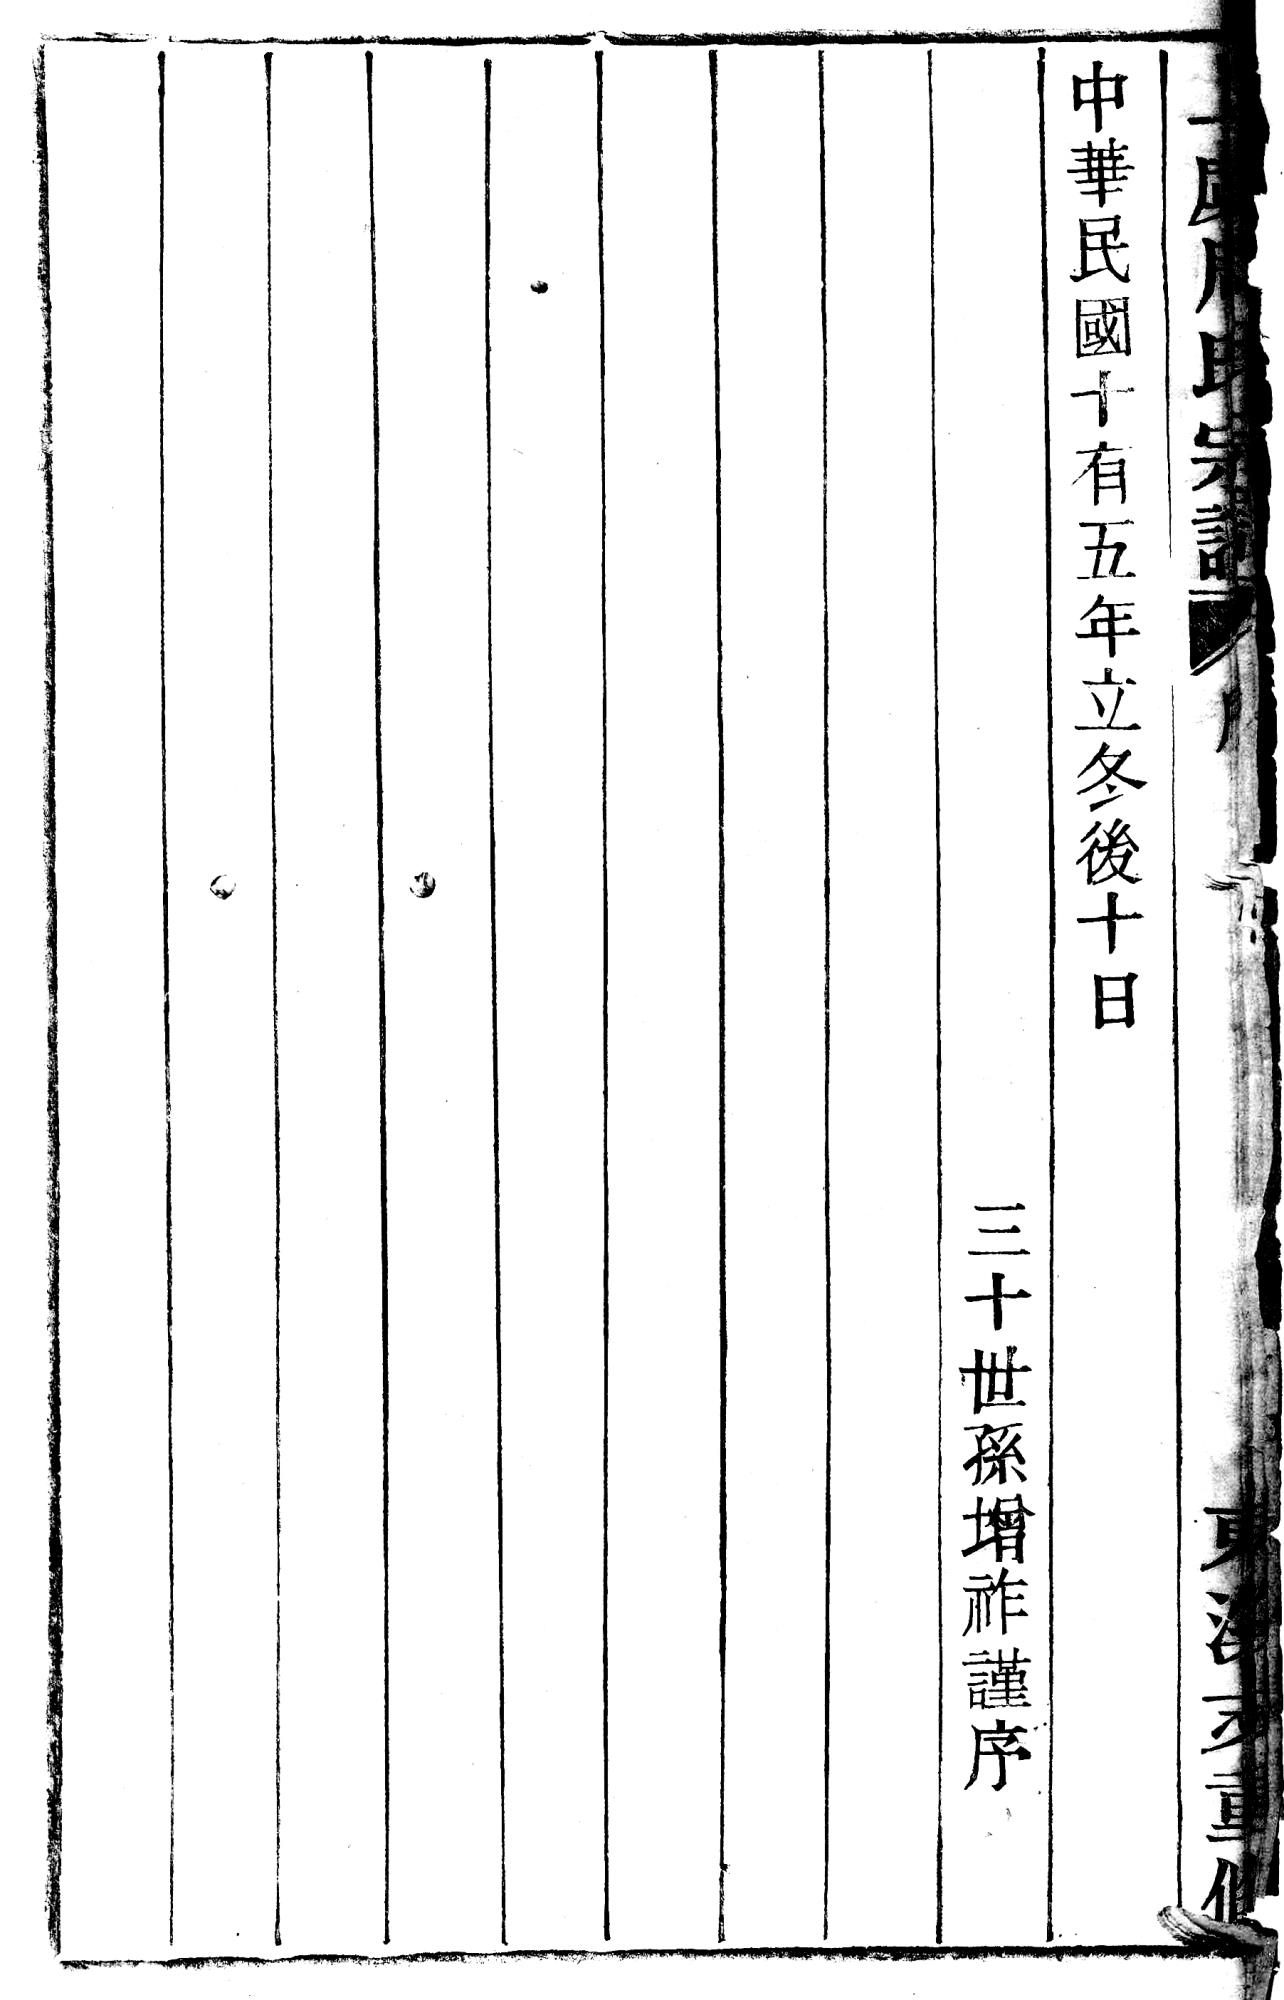 氏宗譜
序
東
重修
中華民國十有五年立冬後十日
三十世孫增祚謹序